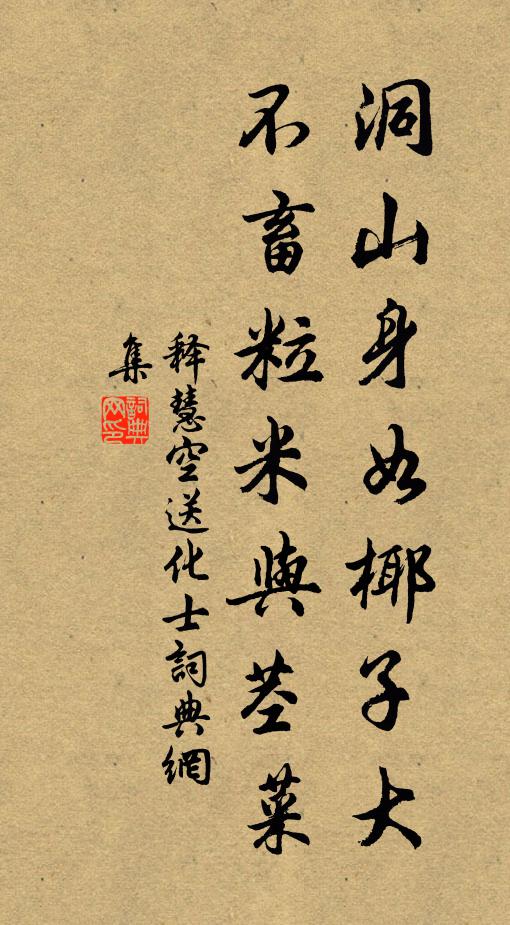 洞山身如椰子大
不畜粒米與莖菜
释慧空送化士詞典網
集
詞典网印